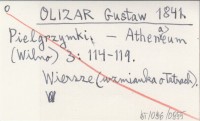 OLIZAR Gustaw 1841.
a)
Pielgrzymki, — Atheneum
(Wilno) 3: 114-119.
Wiersze (wzmianka o Tatrach).
W